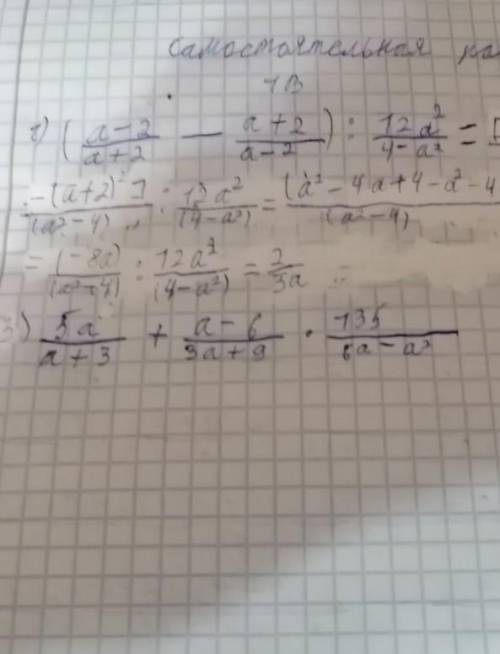 самостоятельная
1В
2) ( a-2/a+2 — a+2/a-2 ) : 12a²/4-a² =
-(a+2)²]/(a²-4) : 12a²/(4-a²) = (a²-4a+4-a²-4/(a²-4)
= (-8a)/(a²-4) : 12a²/(4-a²) = 2/3a
3) 5a/a+3 + a-6/3a+9 · 135/6a-a²